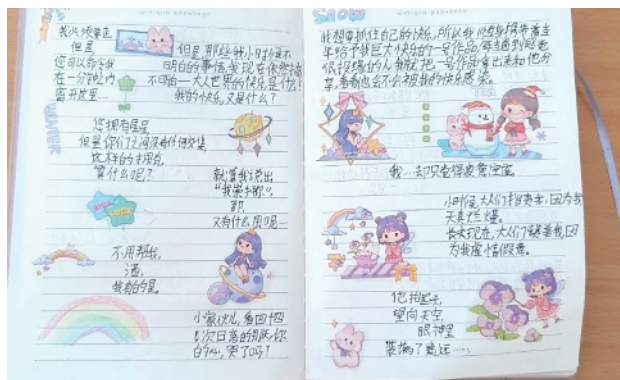 但是
您可以命令我
在一分钟之内
离开这里……
但是那些我小时候不
明白的事情,我现在依然搞
不明白——大人世界的快乐是什么?
我的快乐,又是什么?
WINTER
您拥有星星,
但是你们之间没有任何交集,
这样的占用,
算什么呢?
就算我说出
“我崇拜你”,
那,
又有什么用呢…
LOOK
不用帮忙,
通,
我自的星。
小家伙儿,看四十四
次日落的那天,你
SNOW
我想要抓住自己的快乐,所以我随身携带着当
年给予我巨大快乐的一号作品,每当遇到看起来
很投缘的人,我就把一号作品拿出来和他分
享,看看他会不会被我的快乐感染。
我…却只觉得疲惫空虚。
小时候,大人们喜我,因为我
天真烂漫。
长大现在,大人们我,因
为我虚情假意。
他抬起头,
望向天空,
眼神里
装满了遥远……